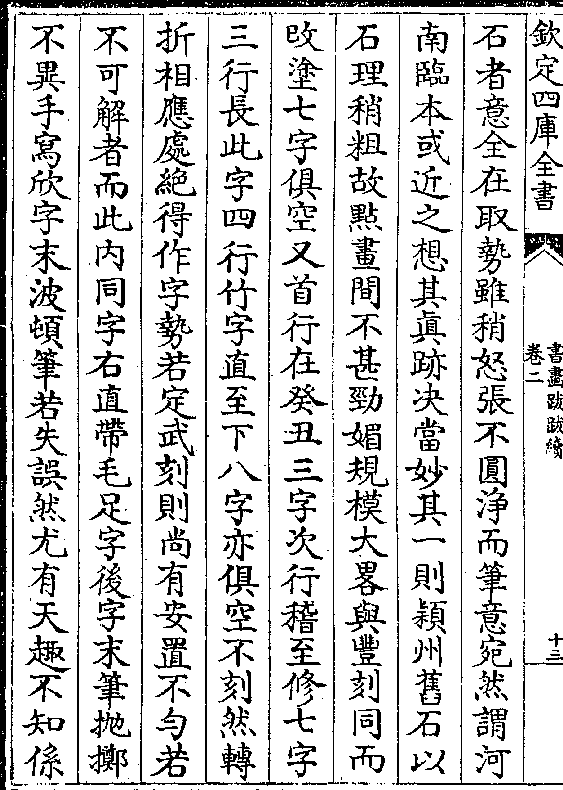 欽定四庫全書
書畫跋跋續
卷二
十三
石者意全在取勢雖稍怒張不圓淨而筆意宛然謂河
南臨本或近之想其真跡決當妙其一則潁州舊石以
石理稍粗故點畫間不甚勁媚規模大畧與豐刻同而
改塗七字俱空又首行在癸丑三字次行稽至修七字
三行長此字四行竹字直至下八字亦俱空不刻然轉
折相應處絶得作字勢若定武刻則尚有安置不勻若
不可解者而此內同字右直帶毛足字後字末筆拋擲
不異手寫欣字末波頓筆若失誤然尤有天趣不知係